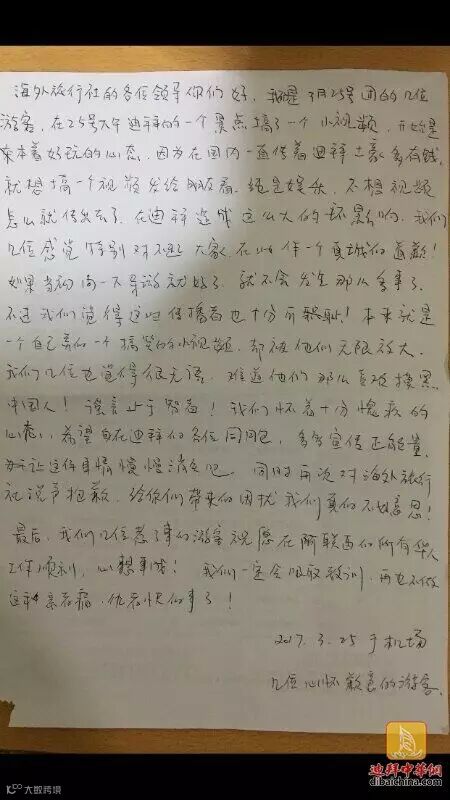 海外旅行社的各位领导你们好，我是3月25号团的几位
游客，在25号下午迪拜的一个景点搞了一个小视频，开始是
来本着好玩的心态，因为在国内一直传着迪拜土豪多有钱，
就想搞一个视频发给朋友看，纯是娱乐，不想视频
怎么就传出去了，在迪拜造成这么大的坏影响，我们
几位感觉特别对不起大家，在此作一个真诚的道歉！
如果当初问一下导游就好了，就不会发生那么多事了。
不过我们觉得这些传播者也十分可耻！本来就是
一个自己弄的一个搞笑的小视频，却被他们无限放大，
我们几位也觉得很无语，难道他们那么喜欢摸黑
中国人！谣言止于智者！我们怀着十分愧疚的
心态，希望身在迪拜的各位同胞，多多宣传正能量，
让这件事情慢慢消失吧。同时再次对海外旅行
社说声抱歉，给你们带来的困扰我们真的不好意思！
最后，我们几位惹了事的游客祝愿在阿联酋的所有华人
工作顺利，心想事成！我们一定会吸取教训，再也不做
这种亲者痛，仇者快的事了！
2017.3.25 于机场
几位心怀歉意的游客.
迪拜中华网
dibaichina.com
大数跨境